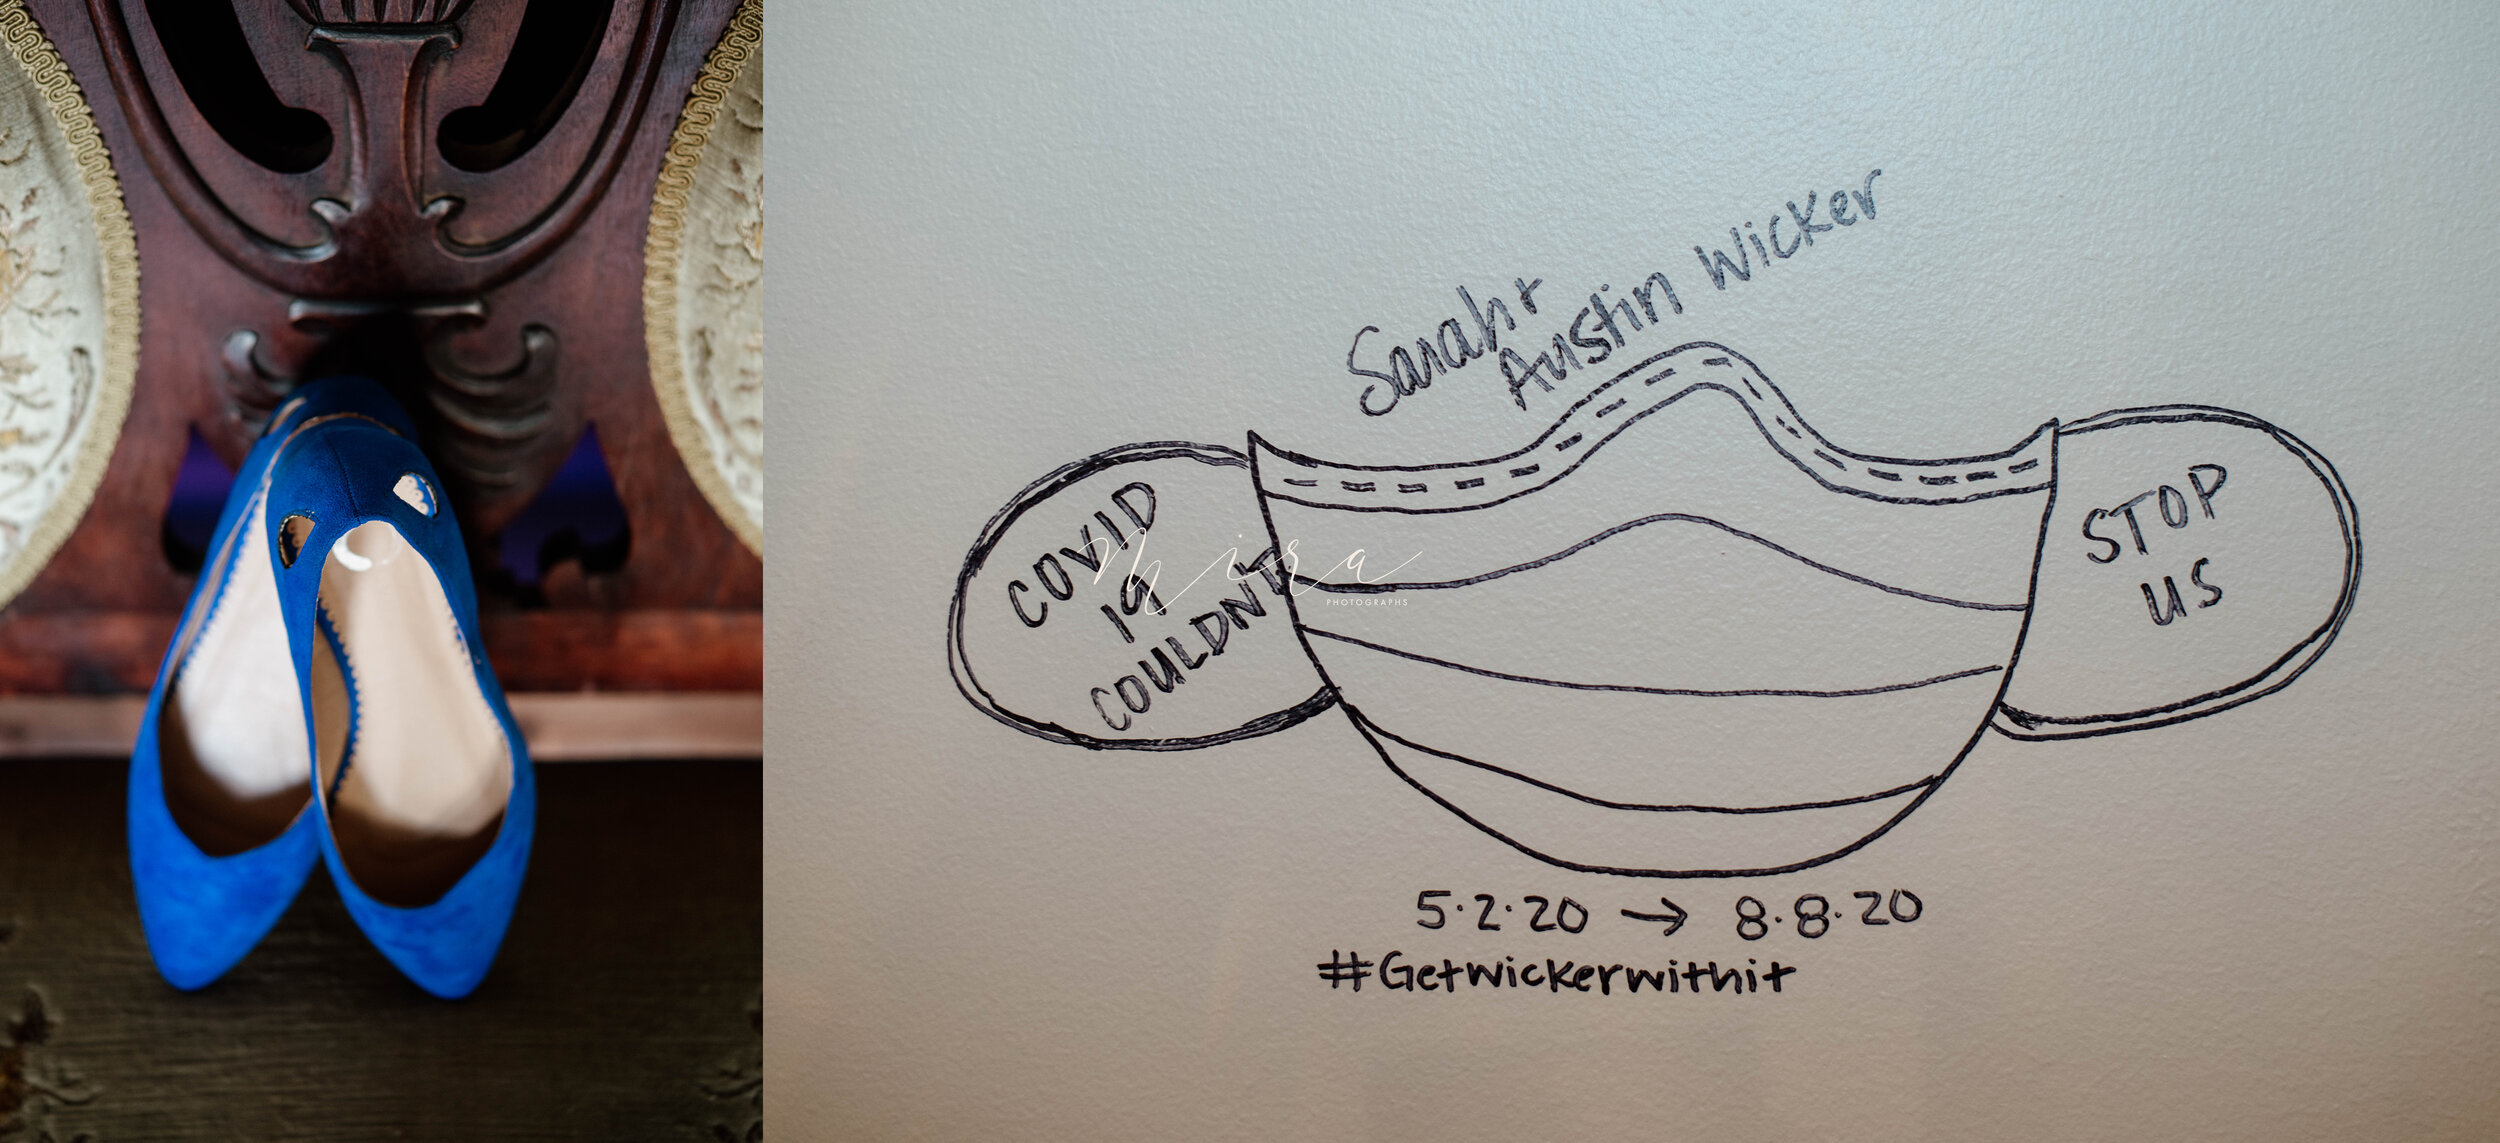 Sarah +
Austin Wicker
COVID
19
COULDNT
STOP
US
mira
PHOTOGRAPHS
5.2.20 → 8.8.20
#Getwickerwithit